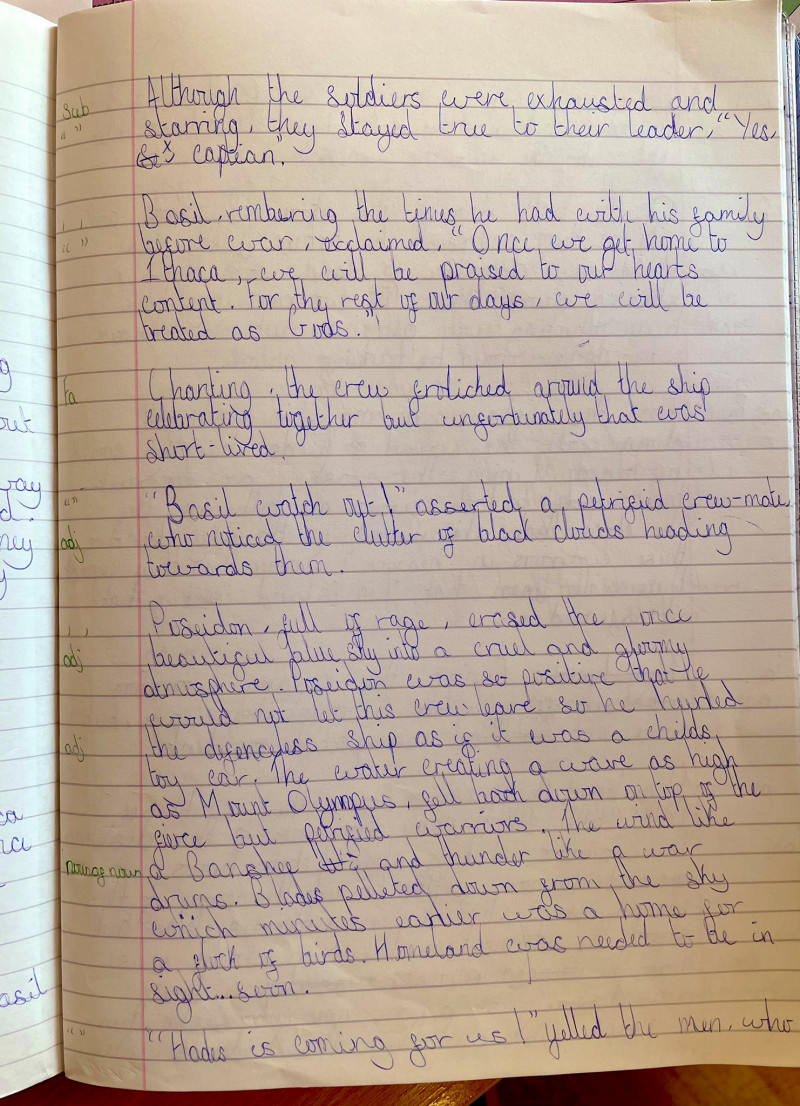 sub Although the soldiers were exhausted and
" " starving, they stayed true to their leader, "Yes,
captian."
, , Basil, rembering the times he had with his family
" " before war, exclaimed, "Once we get home to
Ithaca, we will be praised to our hearts
content. For thy rest of our days, we will be
treated as Gods."
fa Chanting, the crew frolicked around the ship
celebrating together but unfortunately that was
short-lived.
" " "Basil watch out!" asserted a petrified crew-mate
adj who noticed the clutter of black clouds heading
towards them.
, , Poseidon, full of rage, erased the once
adj beautiful blue sky into a cruel and gloomy
atmosphere. Poseidon was so positive that he
would not let this crew leave so he hurled
adj the defenceless ship as if it was a childs
toy car. The water creating a wave as high
as Mount Olympus, fell back down on top of the
fierce but petrified warriors. The wind like
noun of noun a Banshee and thunder like a war
drums. Blades pelleted down from the sky
which minutes earlier was a home for
a flock of birds. Homeland was needed to be in
sight...soon.
" " "Hades is coming for us!" yelled the men, who
g
out
ay
d.
hey
y
ca
asil